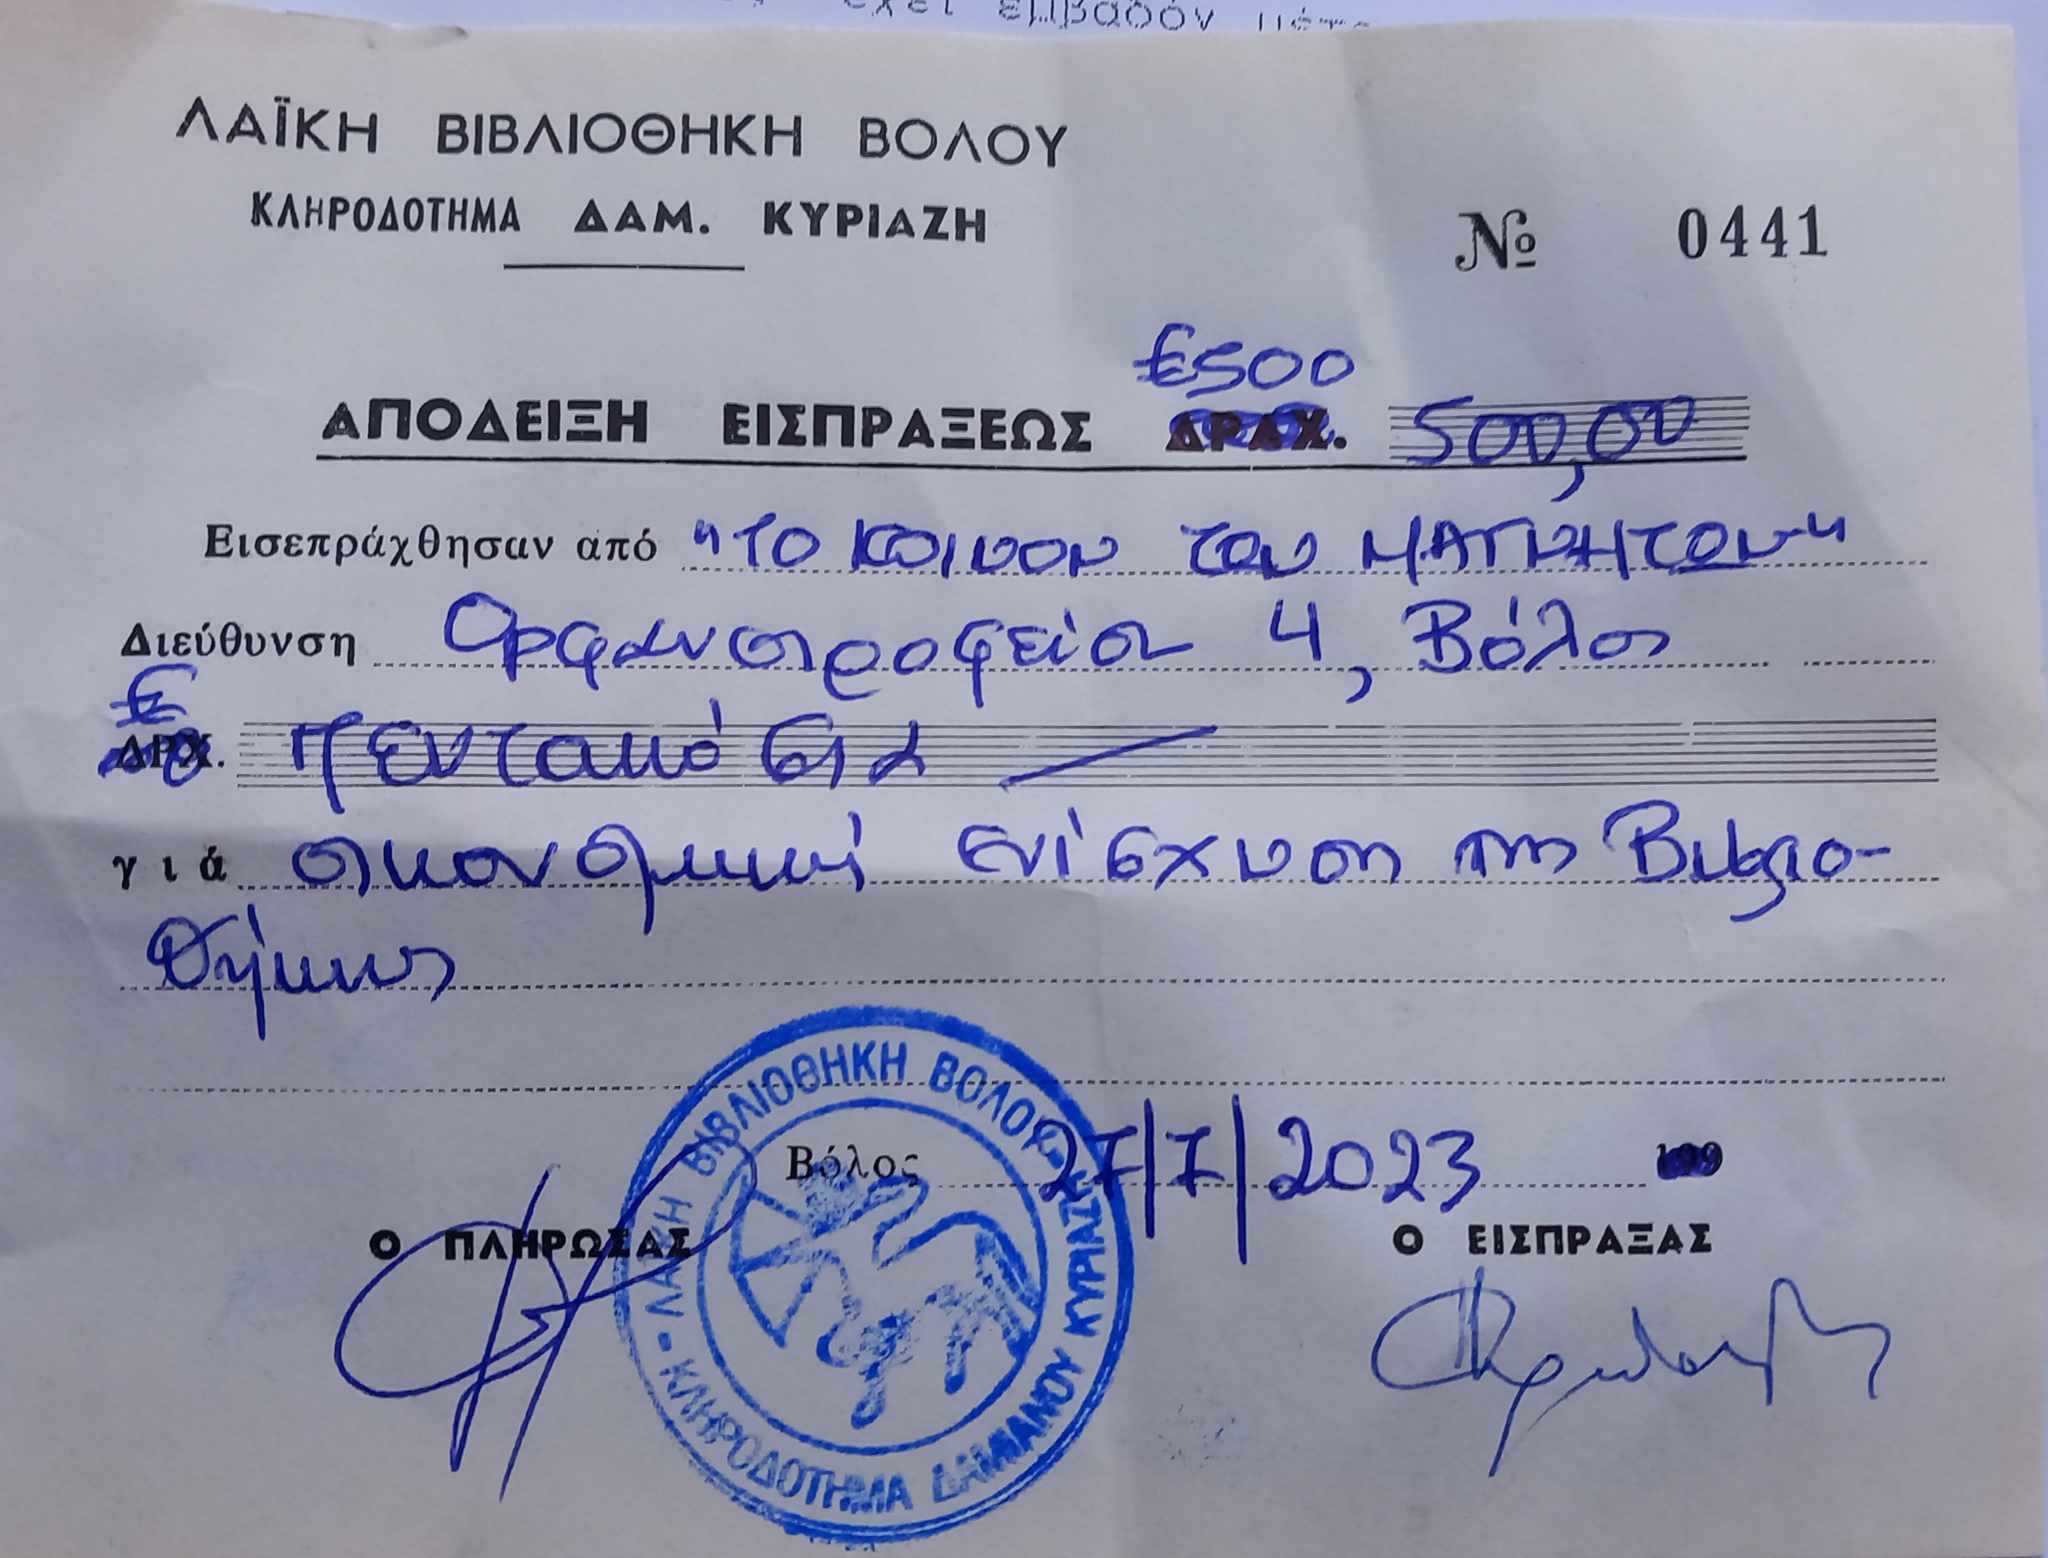 έχει εμβαδόν
ΛΑΪΚΗ ΒΙΒΛΙΟΘΗΚΗ ΒΟΛΟΥ
ΚΛΗΡΟΔΟΤΗΜΑ ΔΑΜ. ΚΥΡΙΑΖΗ
№ 0441
€500
ΑΠΟΔΕΙΞΗ ΕΙΣΠΡΑΞΕΩΣ ΔΡΑΧ. 500,00
Εισεπράχθησαν από "ΤΟ ΚΟΙΝΟΝ ΤΩΝ ΜΑΓΝΗΤΩΝ"
Διεύθυνση Ορφανοτροφείου 4, Βόλος
€
ΔΡΧ. πεντακόσια
γιά οικονομική ενίσχυση της Βιβλιο-
θήκης
Βόλος 27/7/2023 199
Ο ΠΛΗΡΩΣΑΣ Ο ΕΙΣΠΡΑΞΑΣ
ΛΑΪΚΗ ΒΙΒΛΙΟΘΗΚΗ ΒΟΛΟΥ - ΚΛΗΡΟΔΟΤΗΜΑ ΔΑΜΙΑΝΟΥ ΚΥΡΙΑΖΗ